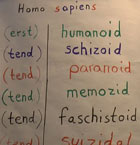 Homo sapiens
(erst) humanoid
(tend) schizoid
(tend) paranoid
(tend) memozid
(tend) faschistoid
suizidal